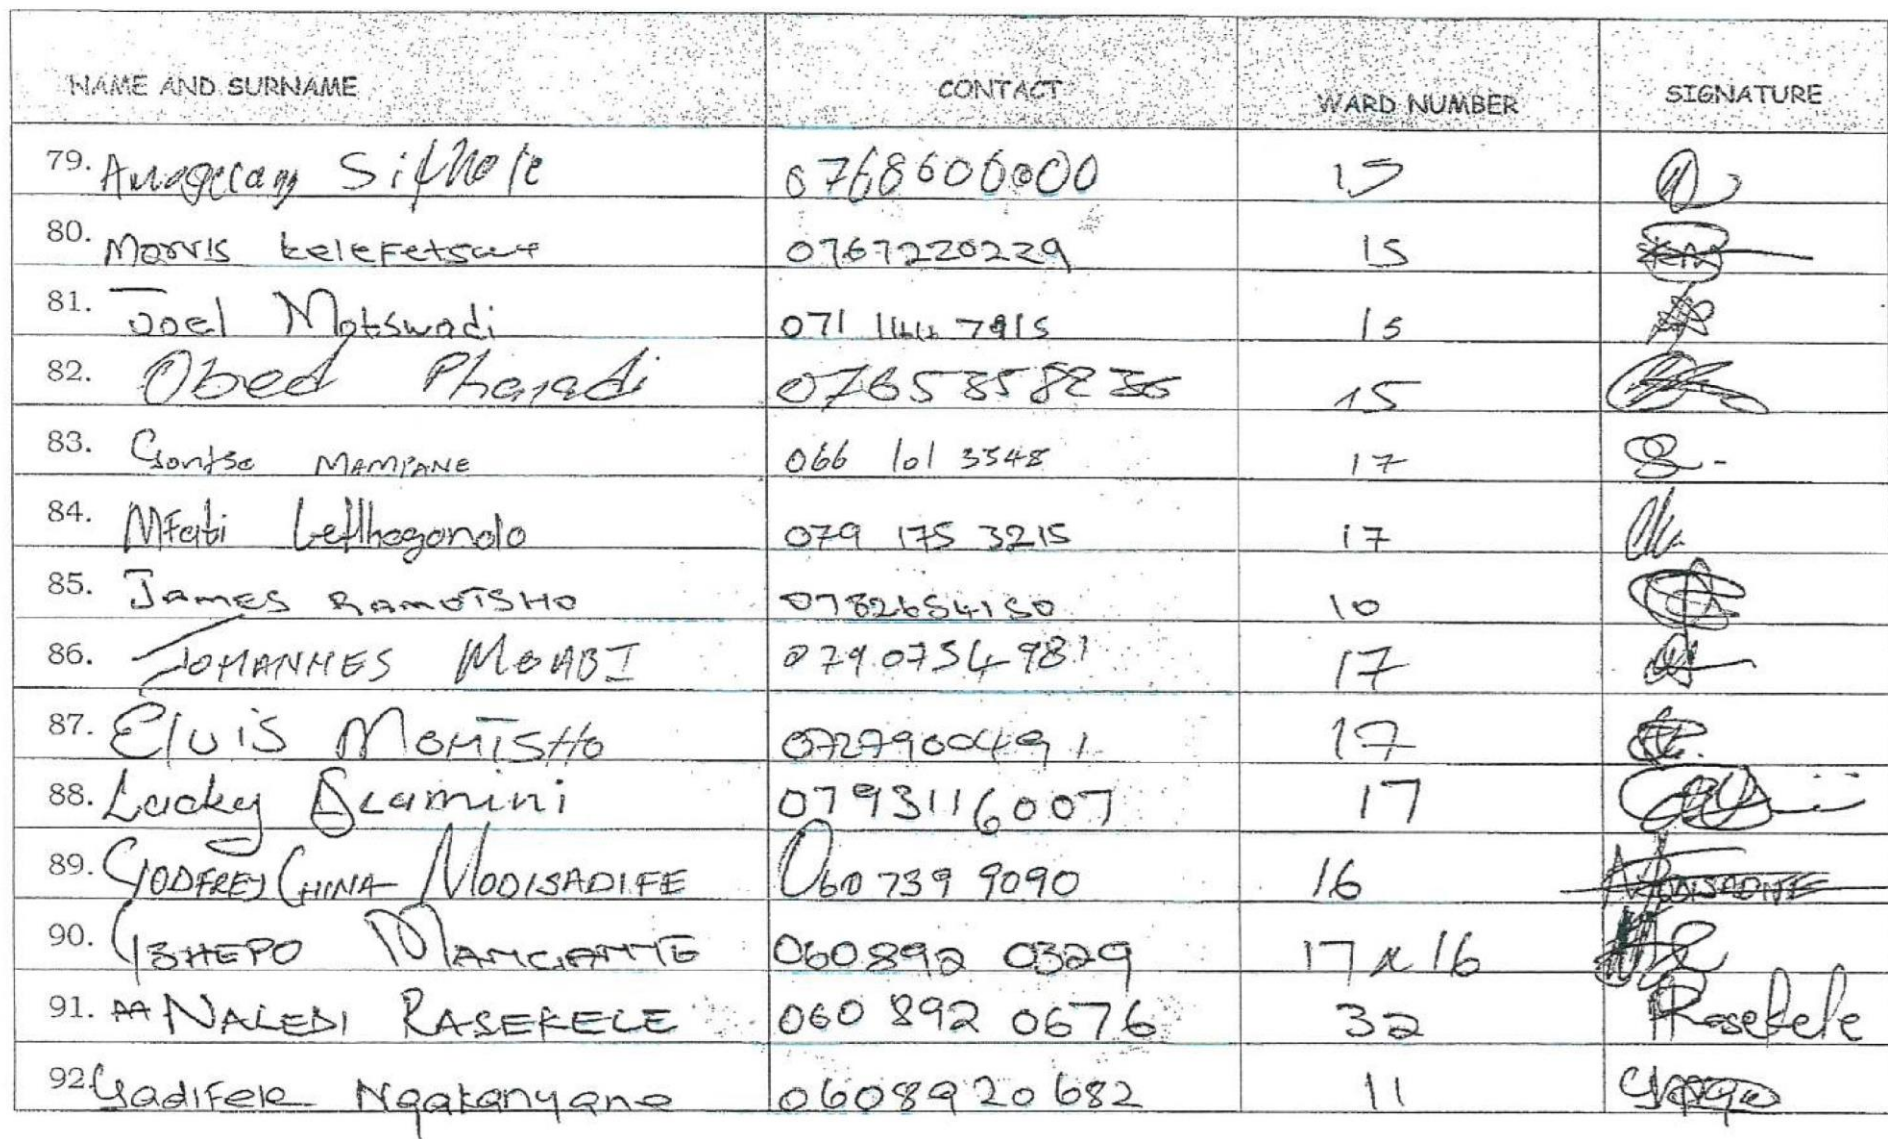 NAME AND SURNAME CONTACT WARD NUMBER SIGNATURE
79. Sithole 0768606000 15
80. Morvis 0767220229 15
81. Joel Motswadi 071 144 7915 15
82. Obed Pharadi 0765358236 15
83. Gontse MAMPANE 066 101 3548 17
84. Mfati Leflhogonolo 079 175 3215 17
85. James RAMOTSHO 0782654150 10
86. JOHANNES MOABI 0790754981 17
87. Elvis MOMTSHO 0727900491 17
88. Lucky Dlamini 0793116007 17
89. GODFREY CHINA MODISADIFE 060 739 9090 16
90. 060892 0329 17 x 16
91. NALEDI RASEKELE 060 892 0676 32 Rasekele
92. Gadifele Ngakanyane 0608920682 11